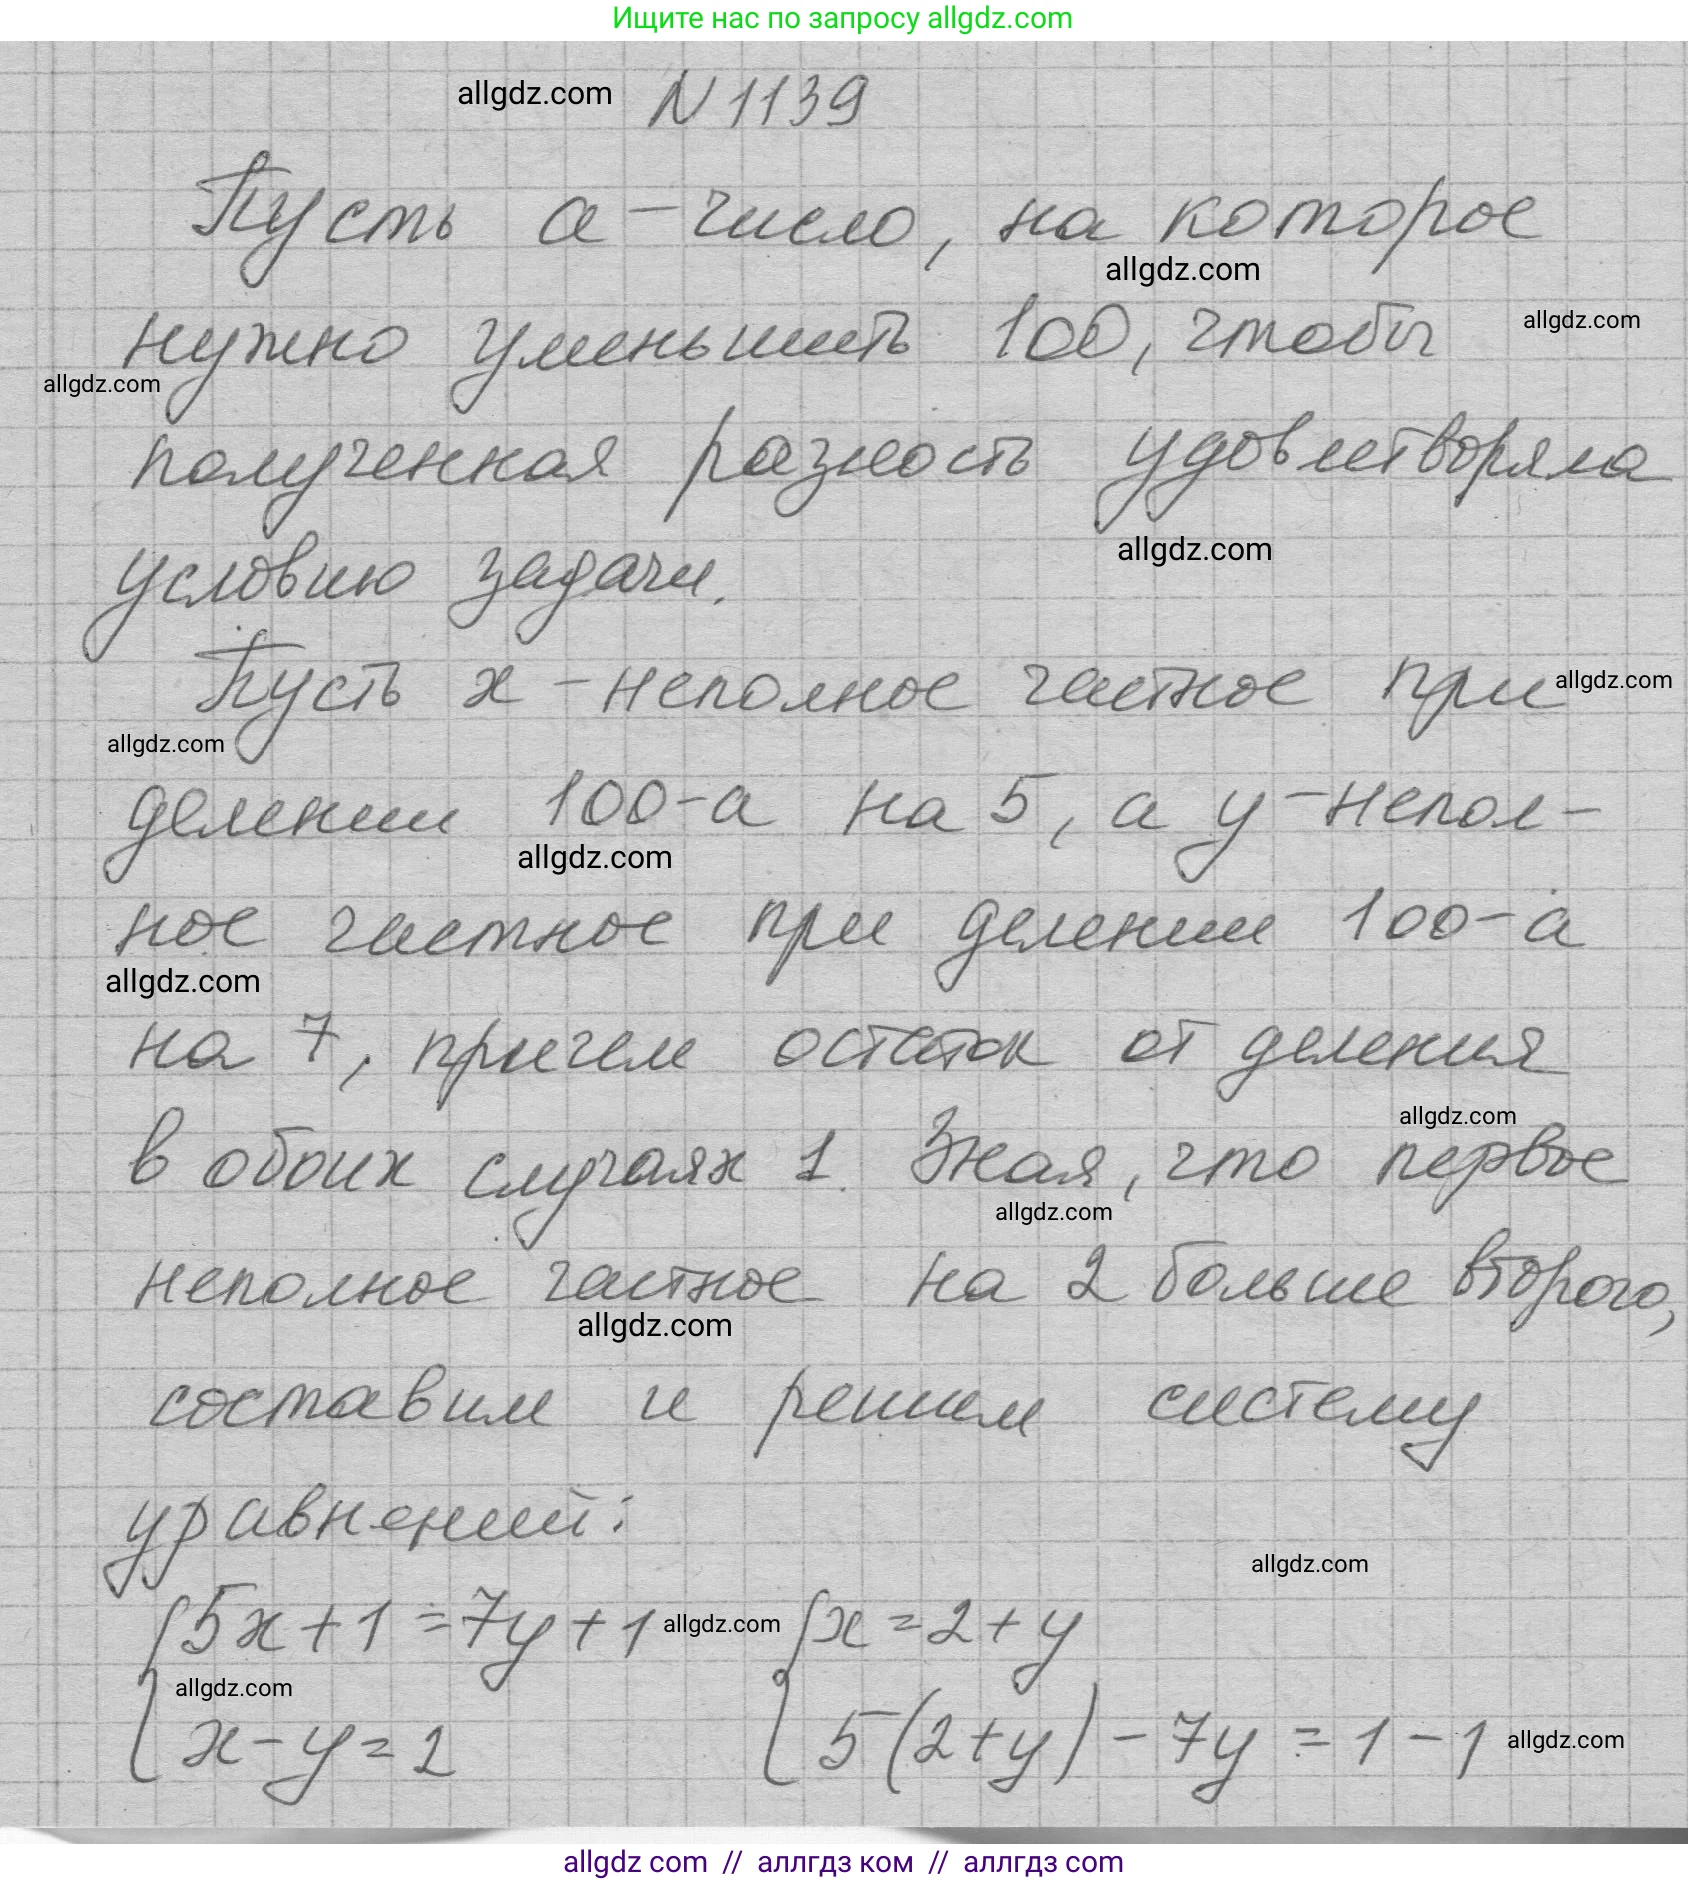 Ищите нас по запросу allgdz.com
allgdz.com N 1139
Пусть a - число, на которое
allgdz.com
нужно уменьшить 100, чтобы
allgdz.com
allgdz.com
полученная разность удовлетворяла
условию задачи.
allgdz.com
Пусть x - неполное частное при
allgdz.com
allgdz.com
делении 100-a на 5, а y - непол-
allgdz.com
ное частное при делении 100-a
allgdz.com
на 7, причем остаток от деления
allgdz.com
в обоих случаях 1. Зная, что первое
allgdz.com
неполное частное на 2 больше второго,
allgdz.com
составим и решим систему
уравнений:
allgdz.com
5x+1=7y+1 allgdz.com x=2+y
allgdz.com
x-y=2 5(2+y)-7y=1-1 allgdz.com
allgdz com // аллгдз ком // аллгдз com